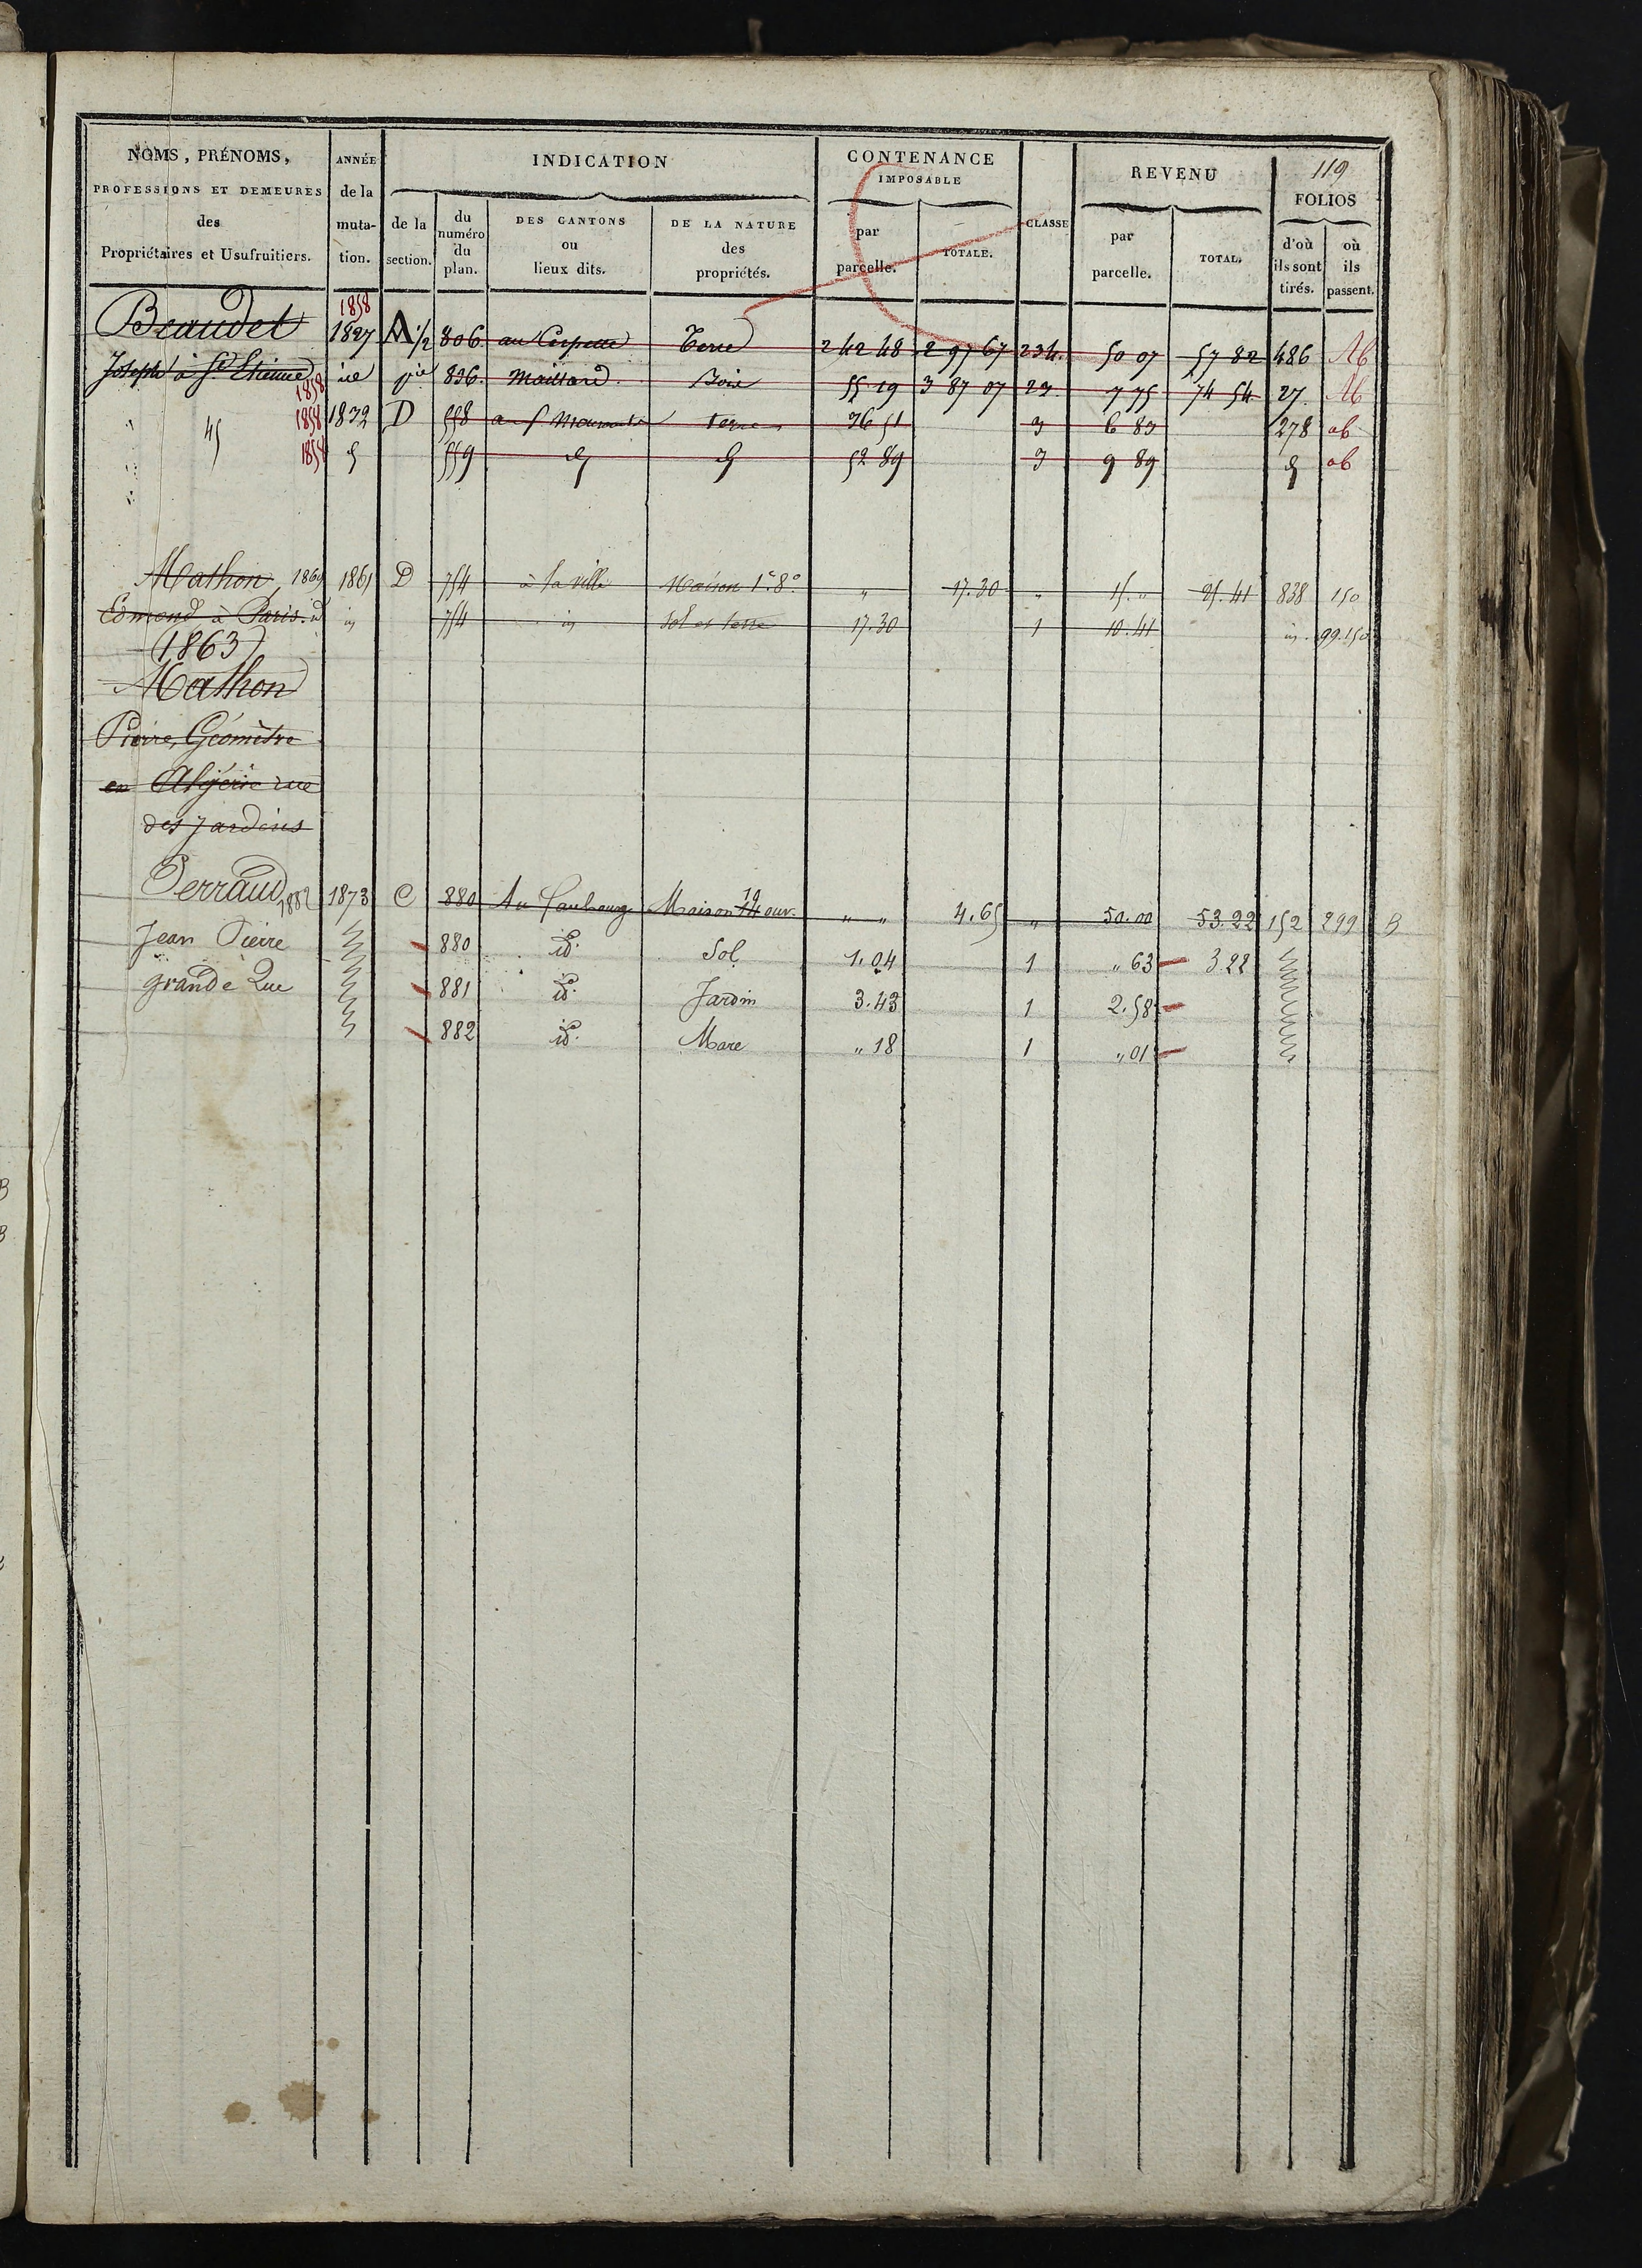 119
NOMS, PRÉNOMS, PROFESSIONS ET DEMEURES des Propriétaires et Usufruitiers. | ANNÉE de la muta- tion. | INDICATION | CONTENANCE IMPOSABLE | CLASSE | REVENU | FOLIOS
de la section. | du numéro du plan. | DES CANTONS ou lieux dits. | DE LA NATURE des propriétés. | par parcelle. | TOTALE. | par parcelle. | TOTAL. | d'où ils sont tirés. | où ils passent.
1858
Beaudet 1827 A 1/2 806 Terre 2 42 48 2 97 67 234 50 07 57 82 486 Ab
Joseph à St Etienne 1858 836 Maillard Bois 55 19 3 87 07 23 7 75 74 54 27 Ab
1858 1832 D 558 terre 36 51 3 6 83 278 ab
1858 559 52 89 3 9 89 ab
Mathon 1869 1861 D 754 à la ville Maison 1e 8o " 17.30 " 15. " 25.41 838 150
Edmond à Paris. id 754 Sol et terre 17.30 1 10.41 99.150
(1863)
Mathon
Pierre, Géomètre
en Algérie rue
des Jardins
Perraud 1882 1873 C 880 Au faubourg Maison 14 10 ouv. " " 4.65 " 50.00 53.22 152 299 B
Jean Pierre 880 id. Sol 1.04 1 " 63 3.22
grande Rue 881 id. Jardin 3.43 1 2.58
882 id. Mare " 18 1 " 01